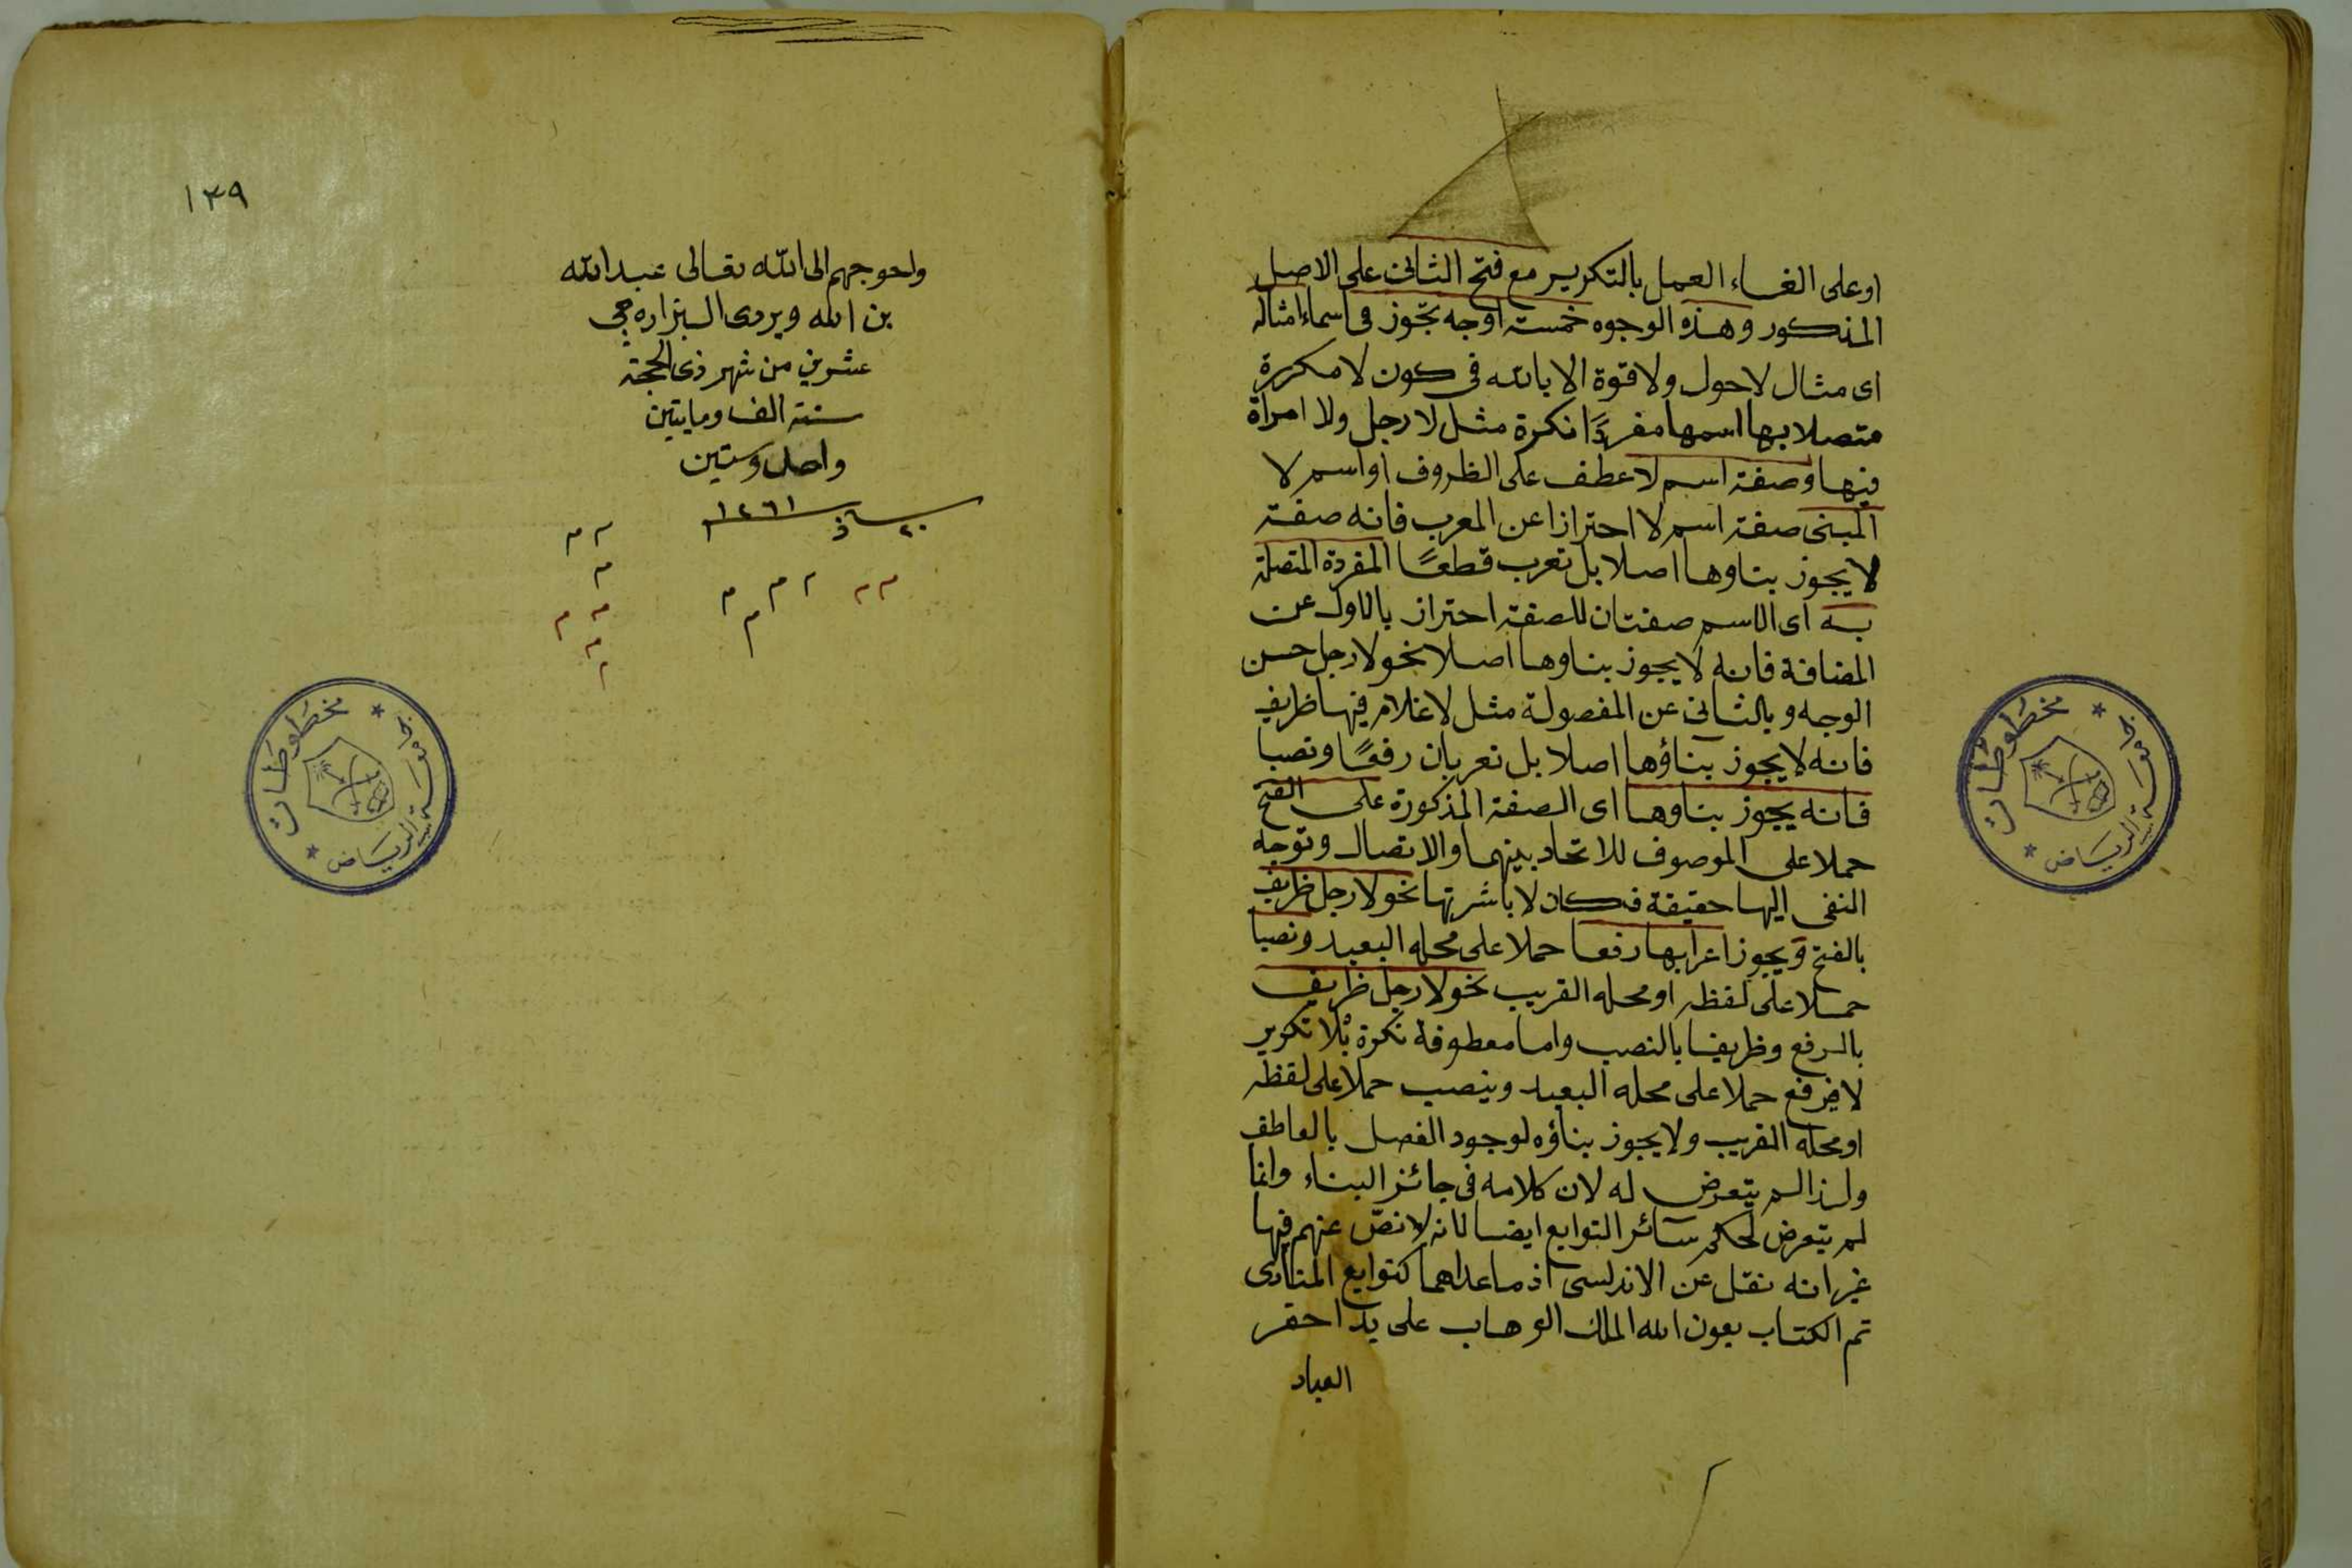 او على الغاء العمل بالتكرير مع فتح الثانى على الاصل
المذكور وهذه الوجوه خمسة اوجه تجوز فى اسماء امثاله
اى مثال لاحول ولا قوة الا بالله فى كون لا مكررة
متصلا بها اسمها مفردًا نكرة مثل لا رجل ولا امراة
فيها وصفة اسم لا عطف على الظروف او اسم لا
المبنى صفة اسم لا احترازا عن المعرب فانه صفة
لا يجوز بناوها اصلا بل تعرب قطعًا المفردة المتصلة
به اى الاسم صفتان للصفة احتراز بالاول عن
المضافة فانه لا يجوز بناوها اصلا نحو لا رجل حسن
الوجه وبالثانى عن المفصولة مثل لا غلام فيها ظريف
فانه لا يجوز بناؤها اصلا بل تعربان رفعًا ونصبا
فانه يجوز بناوها اى الصفة المذكورة على الفتح
حملا على الموصوف للاتحاد بينهما والاتصال وتوجه
النفى اليها حقيقة فكان لا باشرتها نحو لا رجل ظريف
بالفتح ويجوز اعرابها رفعا حملا على محله البعيد ونصبا
حملا على لفظه او محله القريب نحو لا رجل ظريف
بالرفع وظريفا بالنصب واما معطوفة نكرة بلا تكرير
لا فيرفع حملا على محله البعيد وينصب حملا على لفظه
او محله القريب ولا يجوز بناؤه لوجود الفصل بالعاطف
ولذا لم يتعرض له لان كلامه فى جائز البناء وانما
لم يتعرض لحكم سائر التوابع ايضا لانه لا نصّ عنهم فيها
غير انه نقل عن الاندلسى اذ ما عداهما كتوابع المنادى
تم الكتاب بعون الله الملك الوهاب على يد احقر
العباد
١٣٩
واحوجهم الى الله تعالى عبد الله
بن الله ويردى
عشرين من شهر ذى الحجة
سنة الف ومايتين
واحد وستين
١٢٦١
٢٠ ذ
جامعة الرياض
مخطوطات
جامعة الرياض
مخطوطات